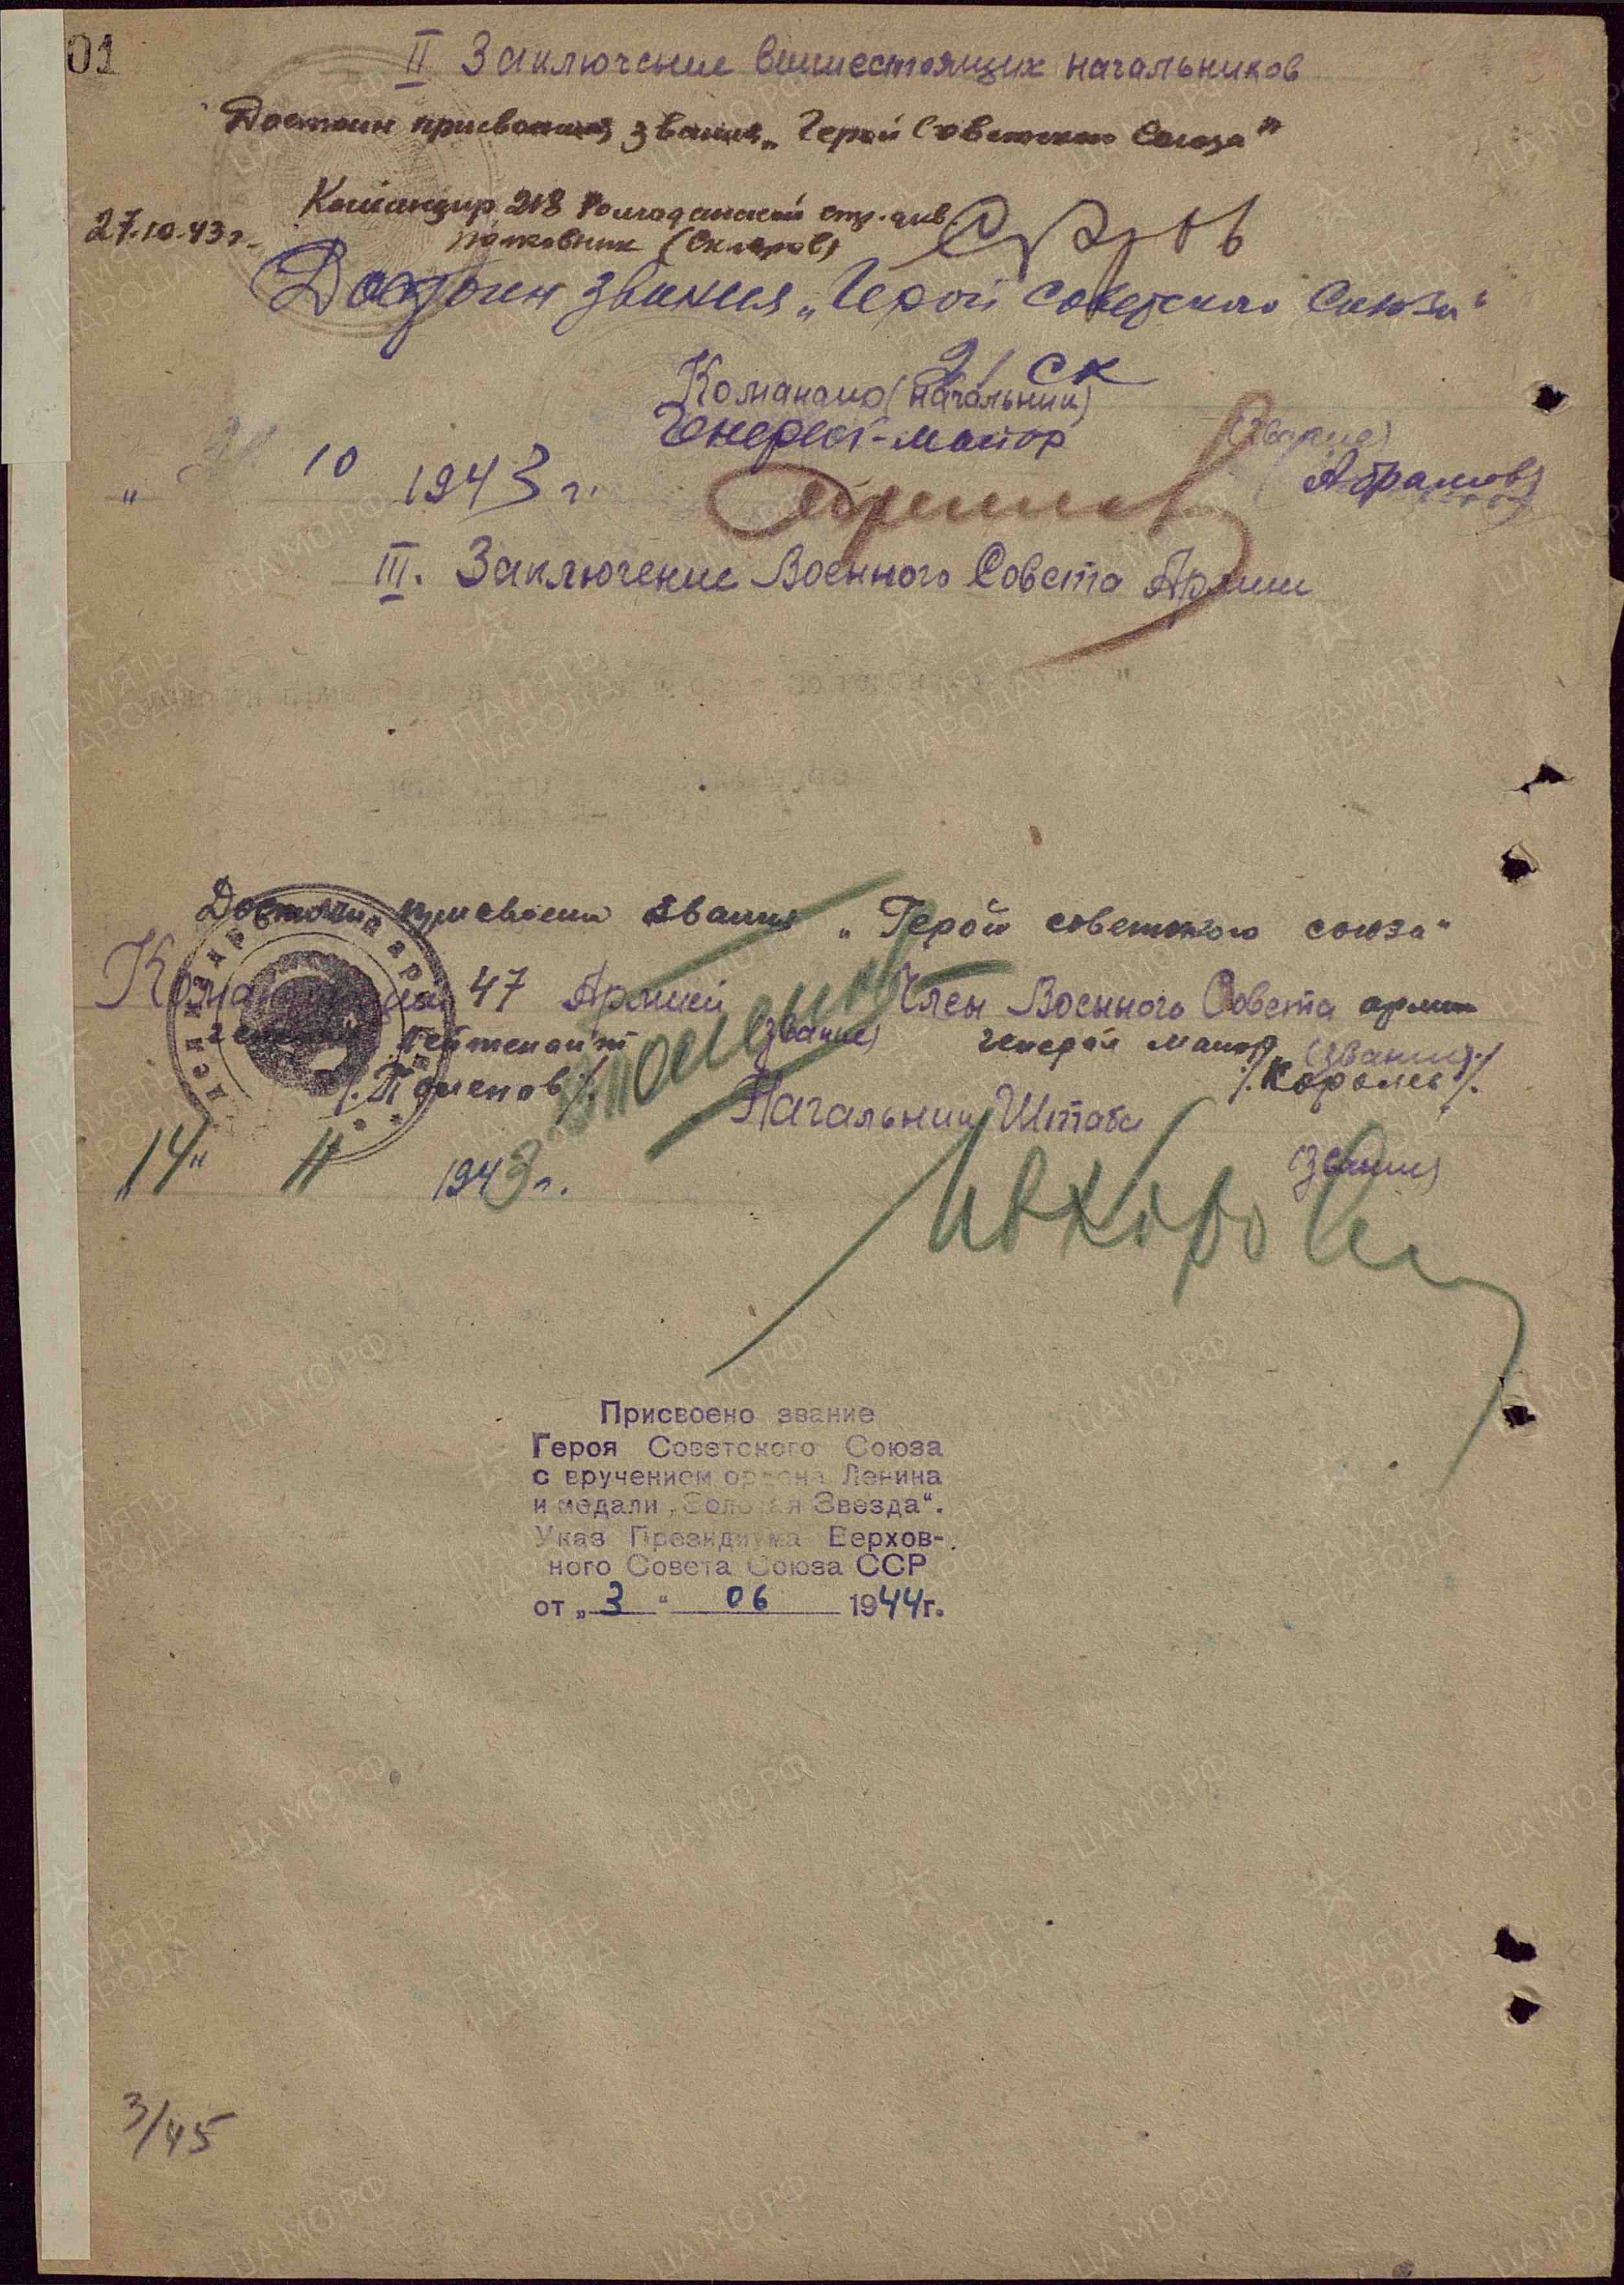 01
II Заключение вышестоящих начальников
Достоин присвоения звания „Герой Советского Союза"
Командир 218 Ромодановской стр. див.
27.10.43 г. полковник (Скляров)
Достоин звания „Герой Советского Союза"
21 СК
Командир (начальник)
Генерал-майор (звание)
Абрамов
" 10 1943 г.
III. Заключение Военного Совета Армии
Достоин присвоения звания „Герой советского союза"
Командующий 47 Армией Член Военного Совета армии
генерал лейтенант (звание) генерал майор (звание)
/Королев/.
Начальник Штаба
„14" 11 1943 г. (звание)
Присвоено звание
Героя Советского Союза
с вручением ордена Ленина
и медали „Золотая Звезда".
Указ Президиума Верхов-
ного Совета Союза ССР
от „3" 06 1944г.
3/45
ЦА МО РФ
ПАМЯТЬ
НАРОДА